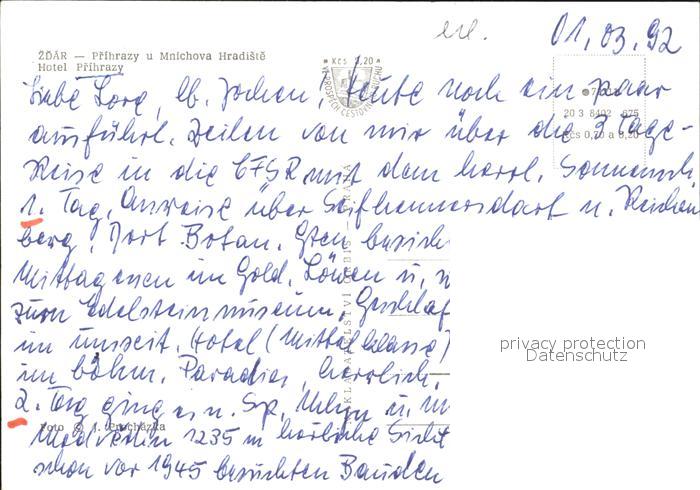 01.03.92
ŽĎÁR — Příhrazy u Mnichova Hradiště
Hotel Příhrazy
Kčs 1,20
Liebe Lore, lb. Jochen, heute noch ein paar
ausführl. Zeilen von mir über die 3 Tage-
Reise in die CFSR mit dem herrl. Sonnensch.
1. Tag, Anreise über Seifhennersdorf n. Reichen
berg, Dort Botan. Gten besich
Mittagessen im Gold. Löwen u.
zum Edelsteinmuseum.
im unseit. Hotel (Mittelklasse)
im böhm. Paradies, herrlich.
2. Tag ging es n. Sp. Mlyn u.
1235 m herrliche Sicht
schon vor 1945 besuchten Bauden
20 3 8402 675
Kčs 0,70 a 0,20
Foto © J. Procházka
privacy protection
Datenschutz